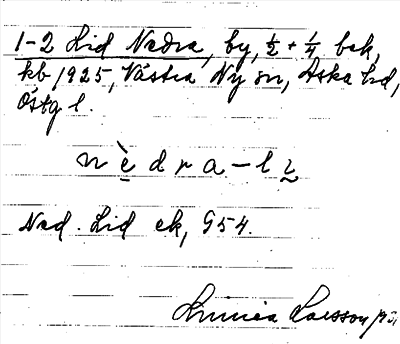 1-2 Lid Nedra, by, ½ + ¼ bck,
kb 1925, Västra Ny sn, Aska hd,
Östg l.
nèdra-lı
Ned. Lid ek, G54.
Linnea Larsson